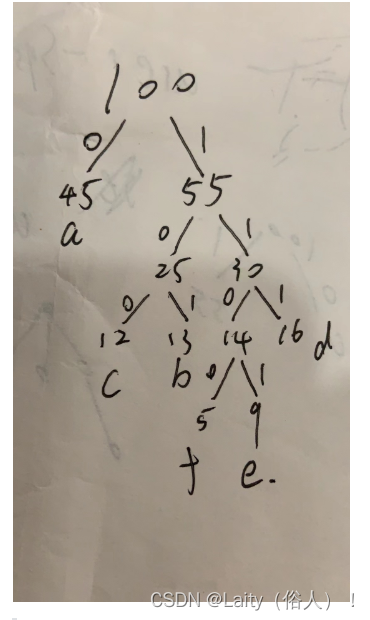 100
0 1
45 55
a 0 1
25 30
0 1 0 1
12 13 14 16 d
c b 0 1
5 9
f e.
CSDN @Laity（俗人）！